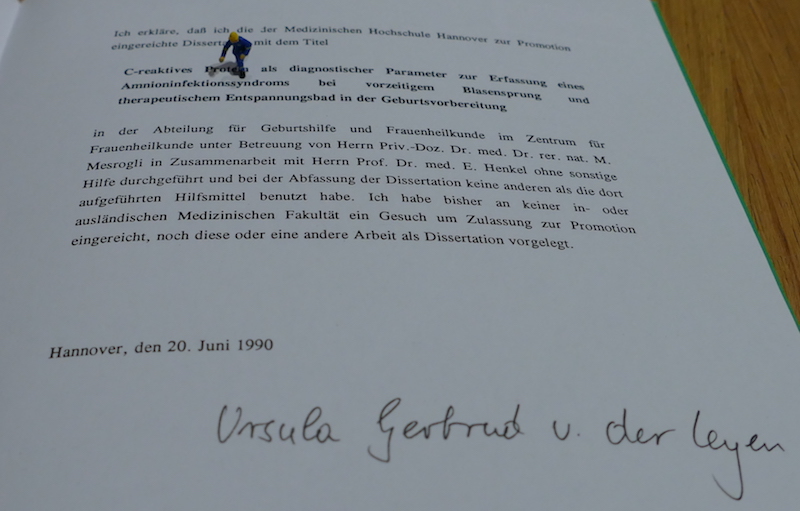 Ich erkläre, daß ich die der Medizinischen Hochschule Hannover zur Promotion
eingereichte Dissertation mit dem Titel
C-reaktives Protein als diagnostischer Parameter zur Erfassung eines
Amnioninfektionssyndroms bei vorzeitigem Blasensprung und
therapeutischem Entspannungsbad in der Geburtsvorbereitung
in der Abteilung für Geburtshilfe und Frauenheilkunde im Zentrum für
Frauenheilkunde unter Betreuung von Herrn Priv.-Doz. Dr. med. Dr. rer. nat. M.
Mesrogli in Zusammenarbeit mit Herrn Prof. Dr. med. E. Henkel ohne sonstige
Hilfe durchgeführt und bei der Abfassung der Dissertation keine anderen als die dort
aufgeführten Hilfsmittel benutzt habe. Ich habe bisher an keiner in- oder
ausländischen Medizinischen Fakultät ein Gesuch um Zulassung zur Promotion
eingereicht, noch diese oder eine andere Arbeit als Dissertation vorgelegt.
Hannover, den 20. Juni 1990
Ursula Gertrud v. der Leyen